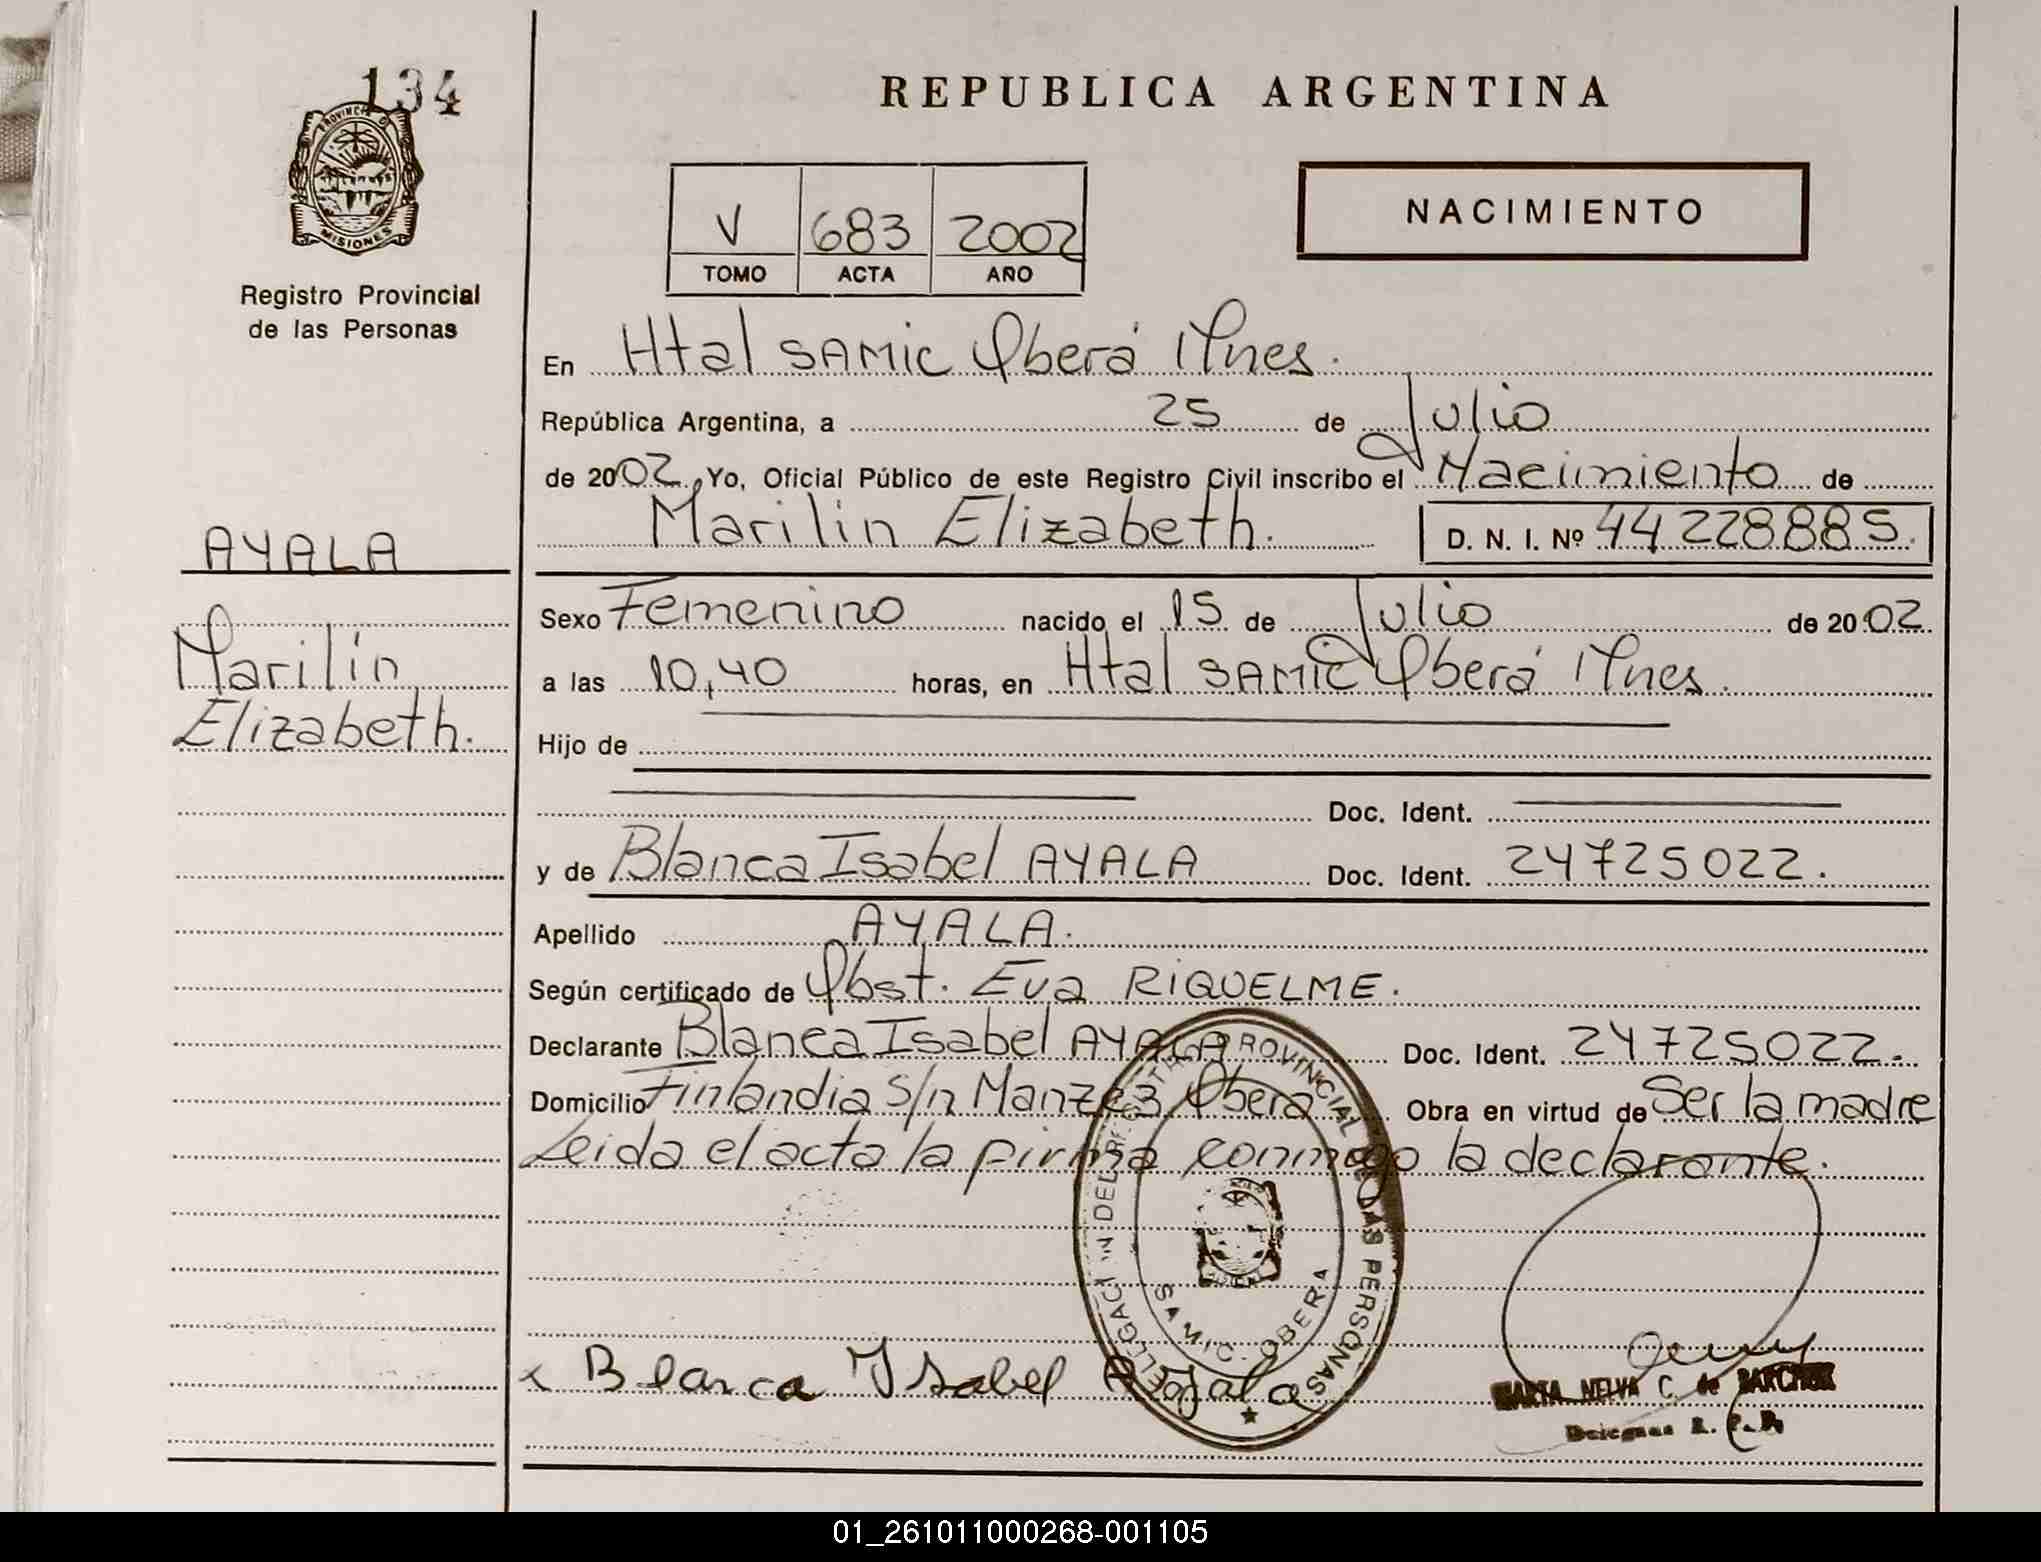 134
PROVINCIA D
MISIONES
Registro Provincial
de las Personas
REPUBLICA ARGENTINA
V 683 2002
TOMO ACTA AÑO
NACIMIENTO
En Htal SAMIC Oberá Mnes.
República Argentina, a 25 de Julio
de 2002. Yo, Oficial Público de este Registro Civil inscribo el Nacimiento de
Marilin Elizabeth. D. N. I. Nº 44228885.
AYALA
Marilin
Elizabeth.
Sexo Femenino nacido el 15 de Julio de 2002
a las 10,40 horas, en Htal SAMIC Oberá Mnes.
Hijo de
Doc. Ident.
y de Blanca Isabel AYALA Doc. Ident. 24725022.
Apellido AYALA.
Según certificado de Obst. Eva RIQUELME.
Declarante Blanca Isabel AYALA Doc. Ident. 24725022.
Domicilio Finlandia S/n Manz Oberá Obra en virtud de Ser la madre
Leida el acta la firma conmigo la declarante.
DELEGACION DEL REGISTRO PROVINCIAL DE LAS PERSONAS
SAMIC - OBERA
x Blanca Ysabel Ayala
MARTA NELVA C. de
R. P. P.
01_261011000268-001105